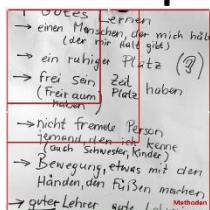 Gutes Lernen
→ einen Menschen, der mich häl
(der mir Halt gibt)
→ ein ruhiger Platz (?)
→ frei sein Zeit haben
(Freiraum Platz
haben)
→ nicht fremde Person
jemand, den ich kenne
(auch Schwester, Kinder)
→ Bewegung, etwas mit den
Händen, den Füßen machen
→ guter Lehrer gute
Methoden